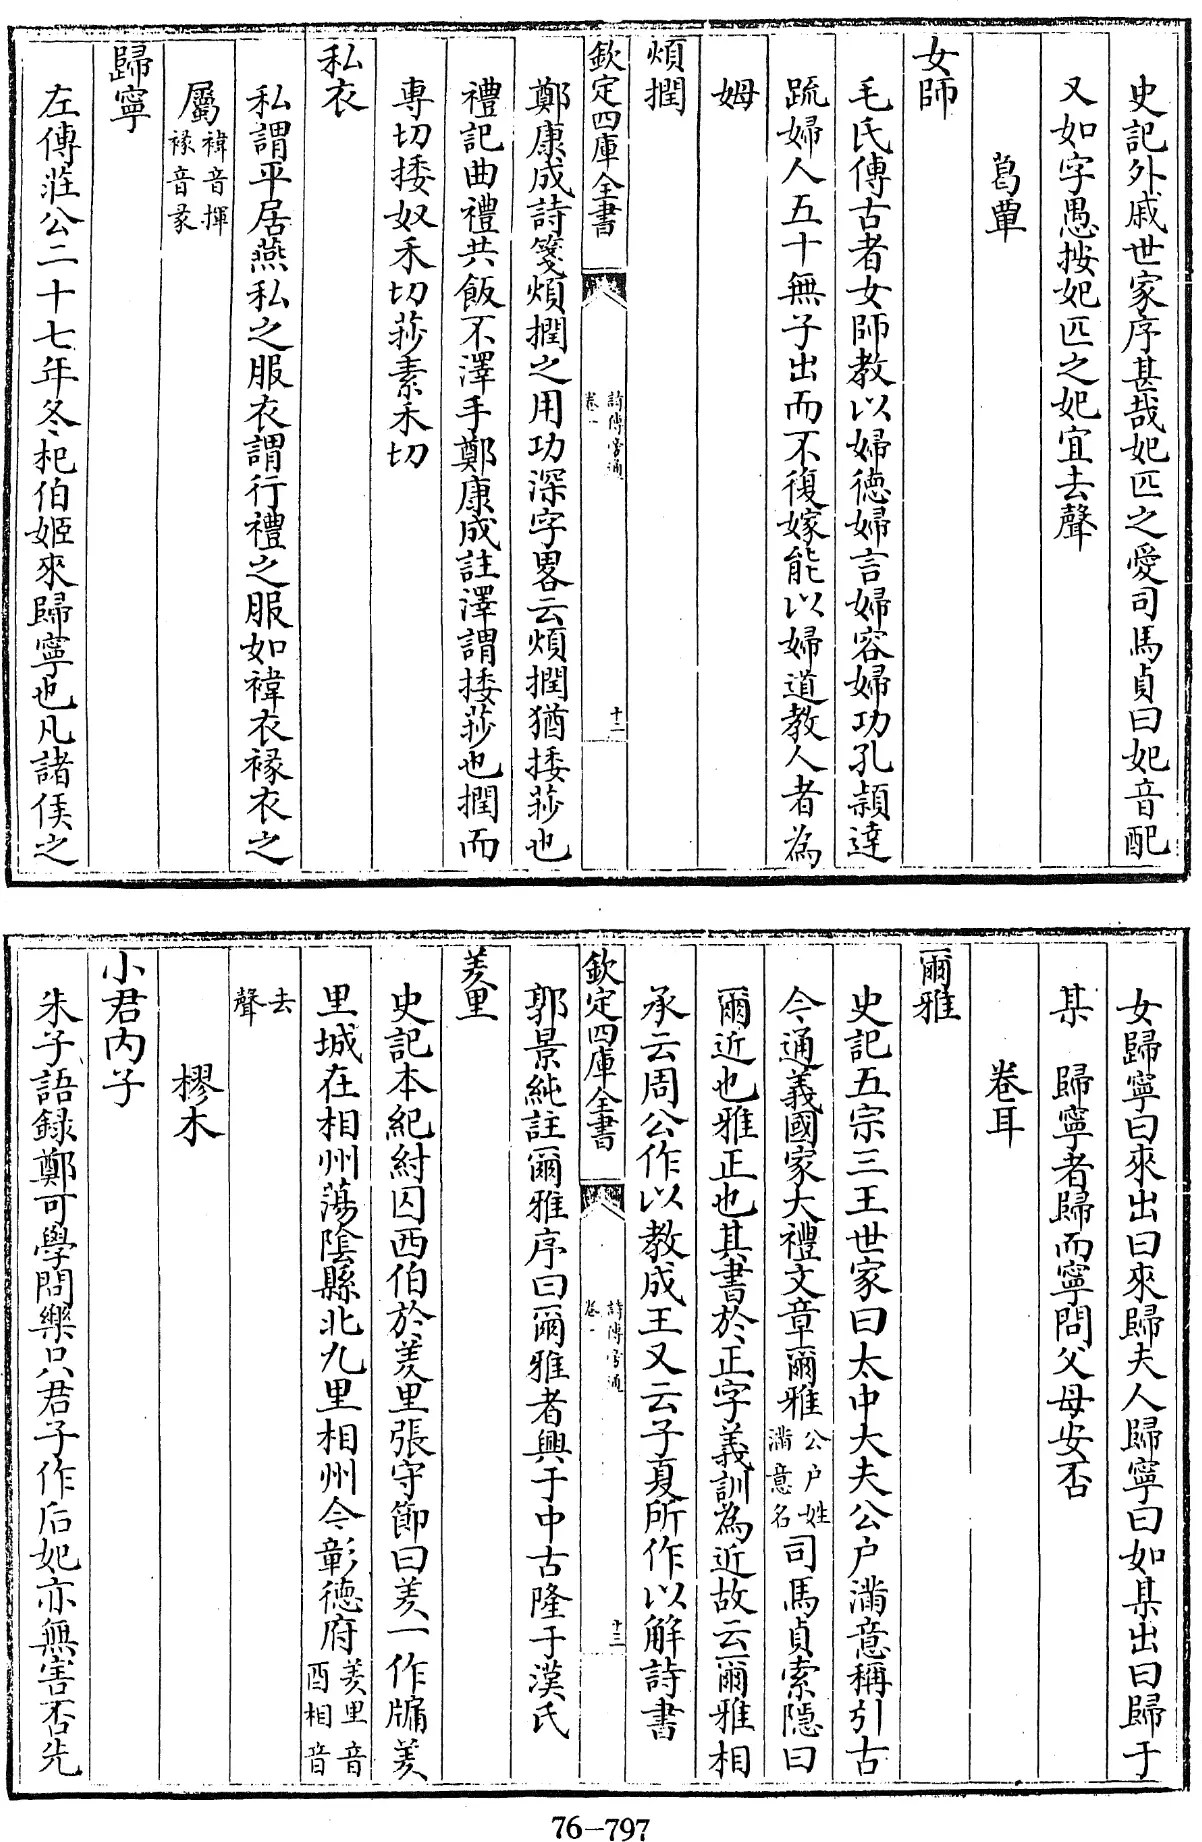 史記外戚世家序甚哉妃匹之愛司馬貞曰妃音配
又如字愚按妃匹之妃宜去聲
葛覃
女師
毛氏傳古者女師教以婦德婦言婦容婦功孔頴達
疏婦人五十無子出而不復嫁能以婦道教人者為
姆
煩撋
欽定四庫全書
詩傳旁通
卷一
十二
鄭康成詩箋煩撋之用功深字畧云煩撋猶捼莏也
禮記曲禮共飯不澤手鄭康成註澤謂捼莏也撋而
專切捼奴禾切莏素禾切
私衣
私謂平居燕私之服衣謂行禮之服如褘衣褖衣之
屬褘音揮
褖音彖
歸寧
左傳莊公二十七年冬杞伯姬來歸寧也凡諸侯之
女歸寧曰來出曰來歸夫人歸寧曰如某出曰歸于
某　歸寧者歸而寧問父母安否
卷耳
爾雅
史記五宗三王世家曰太中大夫公户滿意稱引古
今通義國家大禮文章爾雅公户姓
滿意名
司馬貞索隱曰
爾近也雅正也其書於正字義訓為近故云爾雅相
承云周公作以教成王又云子夏所作以解詩書
欽定四庫全書
詩傳旁通
卷一
十三
郭景純註爾雅序曰爾雅者興于中古隆于漢氏
羑里
史記本紀紂囚西伯於羑里張守節曰羑一作牖羑
里城在相州蕩陰縣北九里相州今彰德府羑里音
酉相音
去
聲
樛木
小君内子
朱子語録鄭可學問樂只君子作后妃亦無害否先
76-797